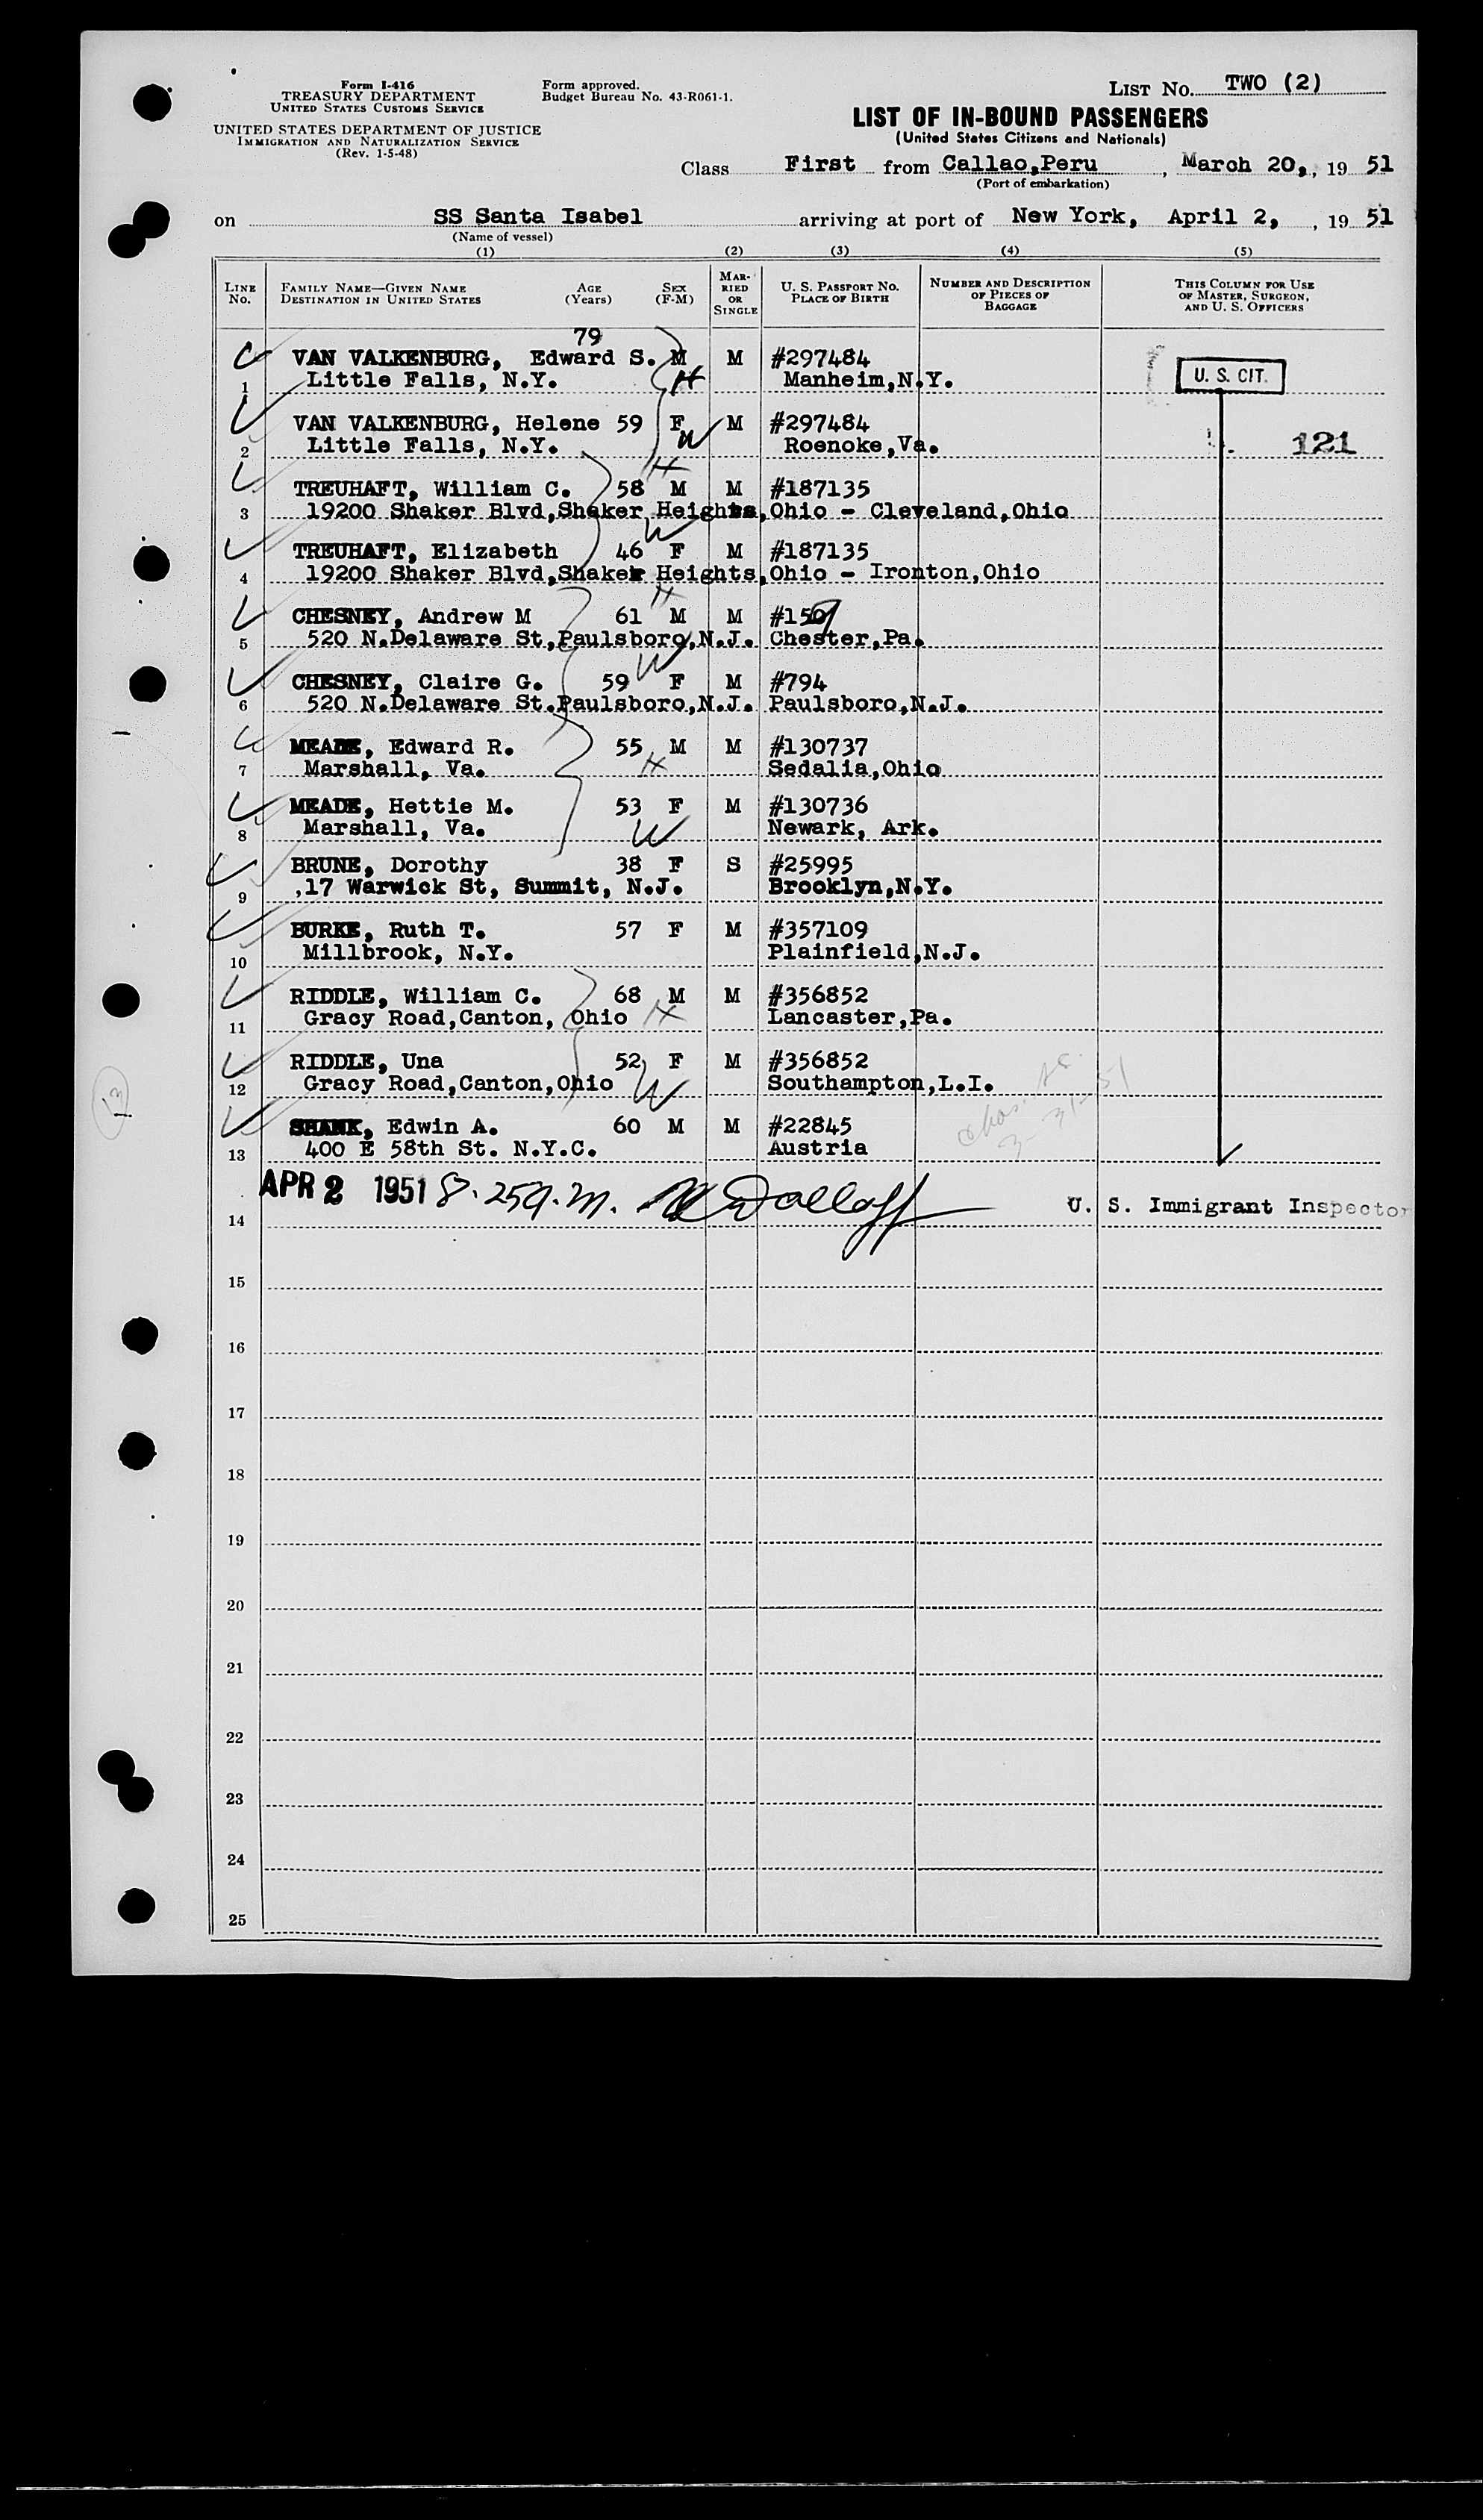 Form I-416
TREASURY DEPARTMENT
UNITED STATES CUSTOMS SERVICE
UNITED STATES DEPARTMENT OF JUSTICE
IMMIGRATION AND NATURALIZATION SERVICE
(Rev. 1-5-48)
Form approved.
Budget Bureau No. 43-R061-1.
LIST No. TWO (2)
LIST OF IN-BOUND PASSENGERS
(United States Citizens and Nationals)
Class First from Callao,Peru, March 20,, 19 51
(Port of embarkation)
on SS Santa Isabel arriving at port of New York, April 2, , 19 51
(Name of vessel)
(1) (2) (3) (4) (5)
LINE No. FAMILY NAME—GIVEN NAME DESTINATION IN UNITED STATES AGE (Years) SEX (F-M) MARRIED OR SINGLE U. S. PASSPORT No. PLACE OF BIRTH NUMBER AND DESCRIPTION OF PIECES OF BAGGAGE THIS COLUMN FOR USE OF MASTER, SURGEON, AND U. S. OFFICERS
79
VAN VALKENBURG, Edward S. M M #297484
1 Little Falls, N.Y. H Manheim,N.Y. U. S. CIT.
VAN VALKENBURG, Helene 59 F M #297484
2 Little Falls, N.Y. W Roenoke,Va. 121
H
TREUHAFT, William C. 58 M M #187135
3 19200 Shaker Blvd,Shaker Heights,Ohio - Cleveland,Ohio
W
TREUHAFT, Elizabeth 46 F M #187135
4 19200 Shaker Blvd,Shaker Heights,Ohio - Ironton,Ohio
H
CHESNEY, Andrew M 61 M M
5 520 N.Delaware St,Paulsboro,N.J. Chester,Pa.
W
CHESNEY, Claire G. 59 F M #794
6 520 N.Delaware St.Paulsboro,N.J. Paulsboro,N.J.
MEADE, Edward R. 55 M M #130737
7 Marshall, Va. H Sedalia,Ohio
MEADE, Hettie M. 53 F M #130736
8 Marshall, Va. W Newark, Ark.
BRUNE, Dorothy 38 F S #25995
9 ,17 Warwick St, Summit, N.J. Brooklyn,N.Y.
BURKE, Ruth T. 57 F M #357109
10 Millbrook, N.Y. Plainfield,N.J.
RIDDLE, William C. 68 M M #356852
11 Gracy Road,Canton, Ohio H Lancaster,Pa.
RIDDLE, Una 52 F M #356852
12 Gracy Road,Canton,Ohio W Southampton,L.I.
13
SHANK, Edwin A. 60 M M #22845
13 400 E 58th St. N.Y.C. Austria
APR 2 1951 8.25a.m. U. S. Immigrant Inspector
14
15
16
17
18
19
20
21
22
23
24
25